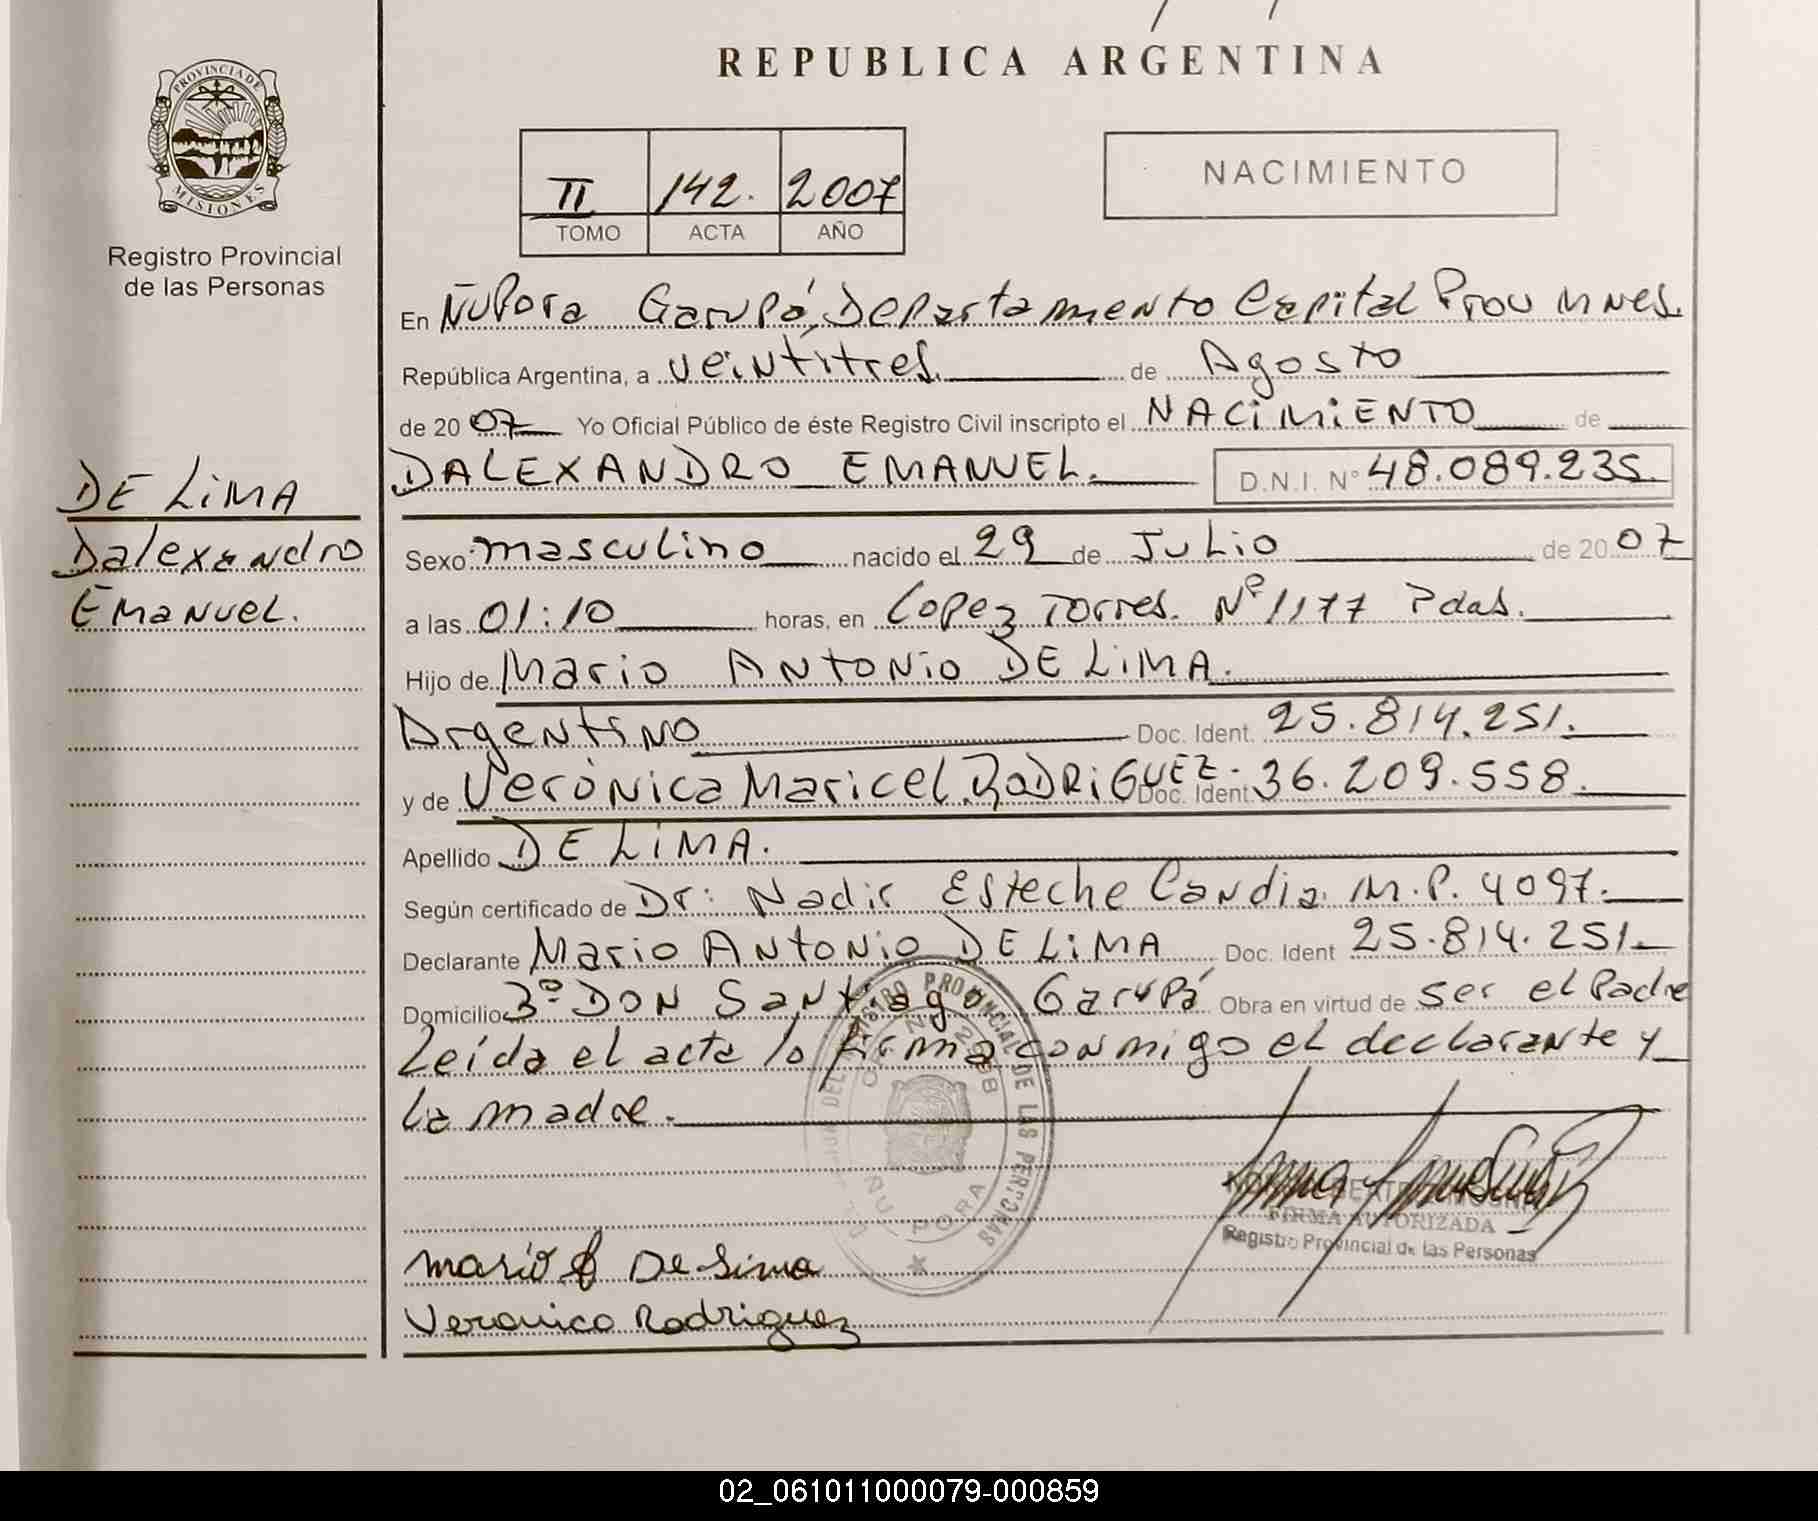 REPUBLICA ARGENTINA
PROVINCIA DE
MISIONES
Registro Provincial
de las Personas
II 142. 2007
TOMO ACTA AÑO
NACIMIENTO
En Ñu Pora Garupá, Departamento Capital Prov Mnes.
República Argentina, a veintitres. de Agosto
de 2007 Yo Oficial Público de éste Registro Civil inscripto el NACIMIENTO de
DALEXANDRO EMANUEL. D.N.I. Nº 48.089.235.
DE LIMA
Dalexandro
Emanuel.
Sexo: masculino nacido el 29 de Julio de 2007
a las 01:10 horas, en Lopez Torres. Nº 1177 Pdas.
Hijo de Mario Antonio DE LIMA.
Argentino Doc. Ident. 25.814.251.
y de Verónica Maricel RODRIGUEZ. Doc. Ident. 36.209.558.
Apellido DE LIMA.
Según certificado de Dr: Nadir Esteche Candia. M.P. 4097.
Declarante Mario Antonio DE LIMA Doc. Ident 25.814.251.
Domicilio 3º DON Santiago Garupá Obra en virtud de ser el Padre
Leída el acta lo firma conmigo el declarante y
la madre.
REGISTRO PROVINCIAL DE LAS PERSONAS
ÑU PORA
FIRMA AUTORIZADA
Registro Provincial de las Personas
Mario De Lima
Veronica Rodriguez
02_061011000079-000859